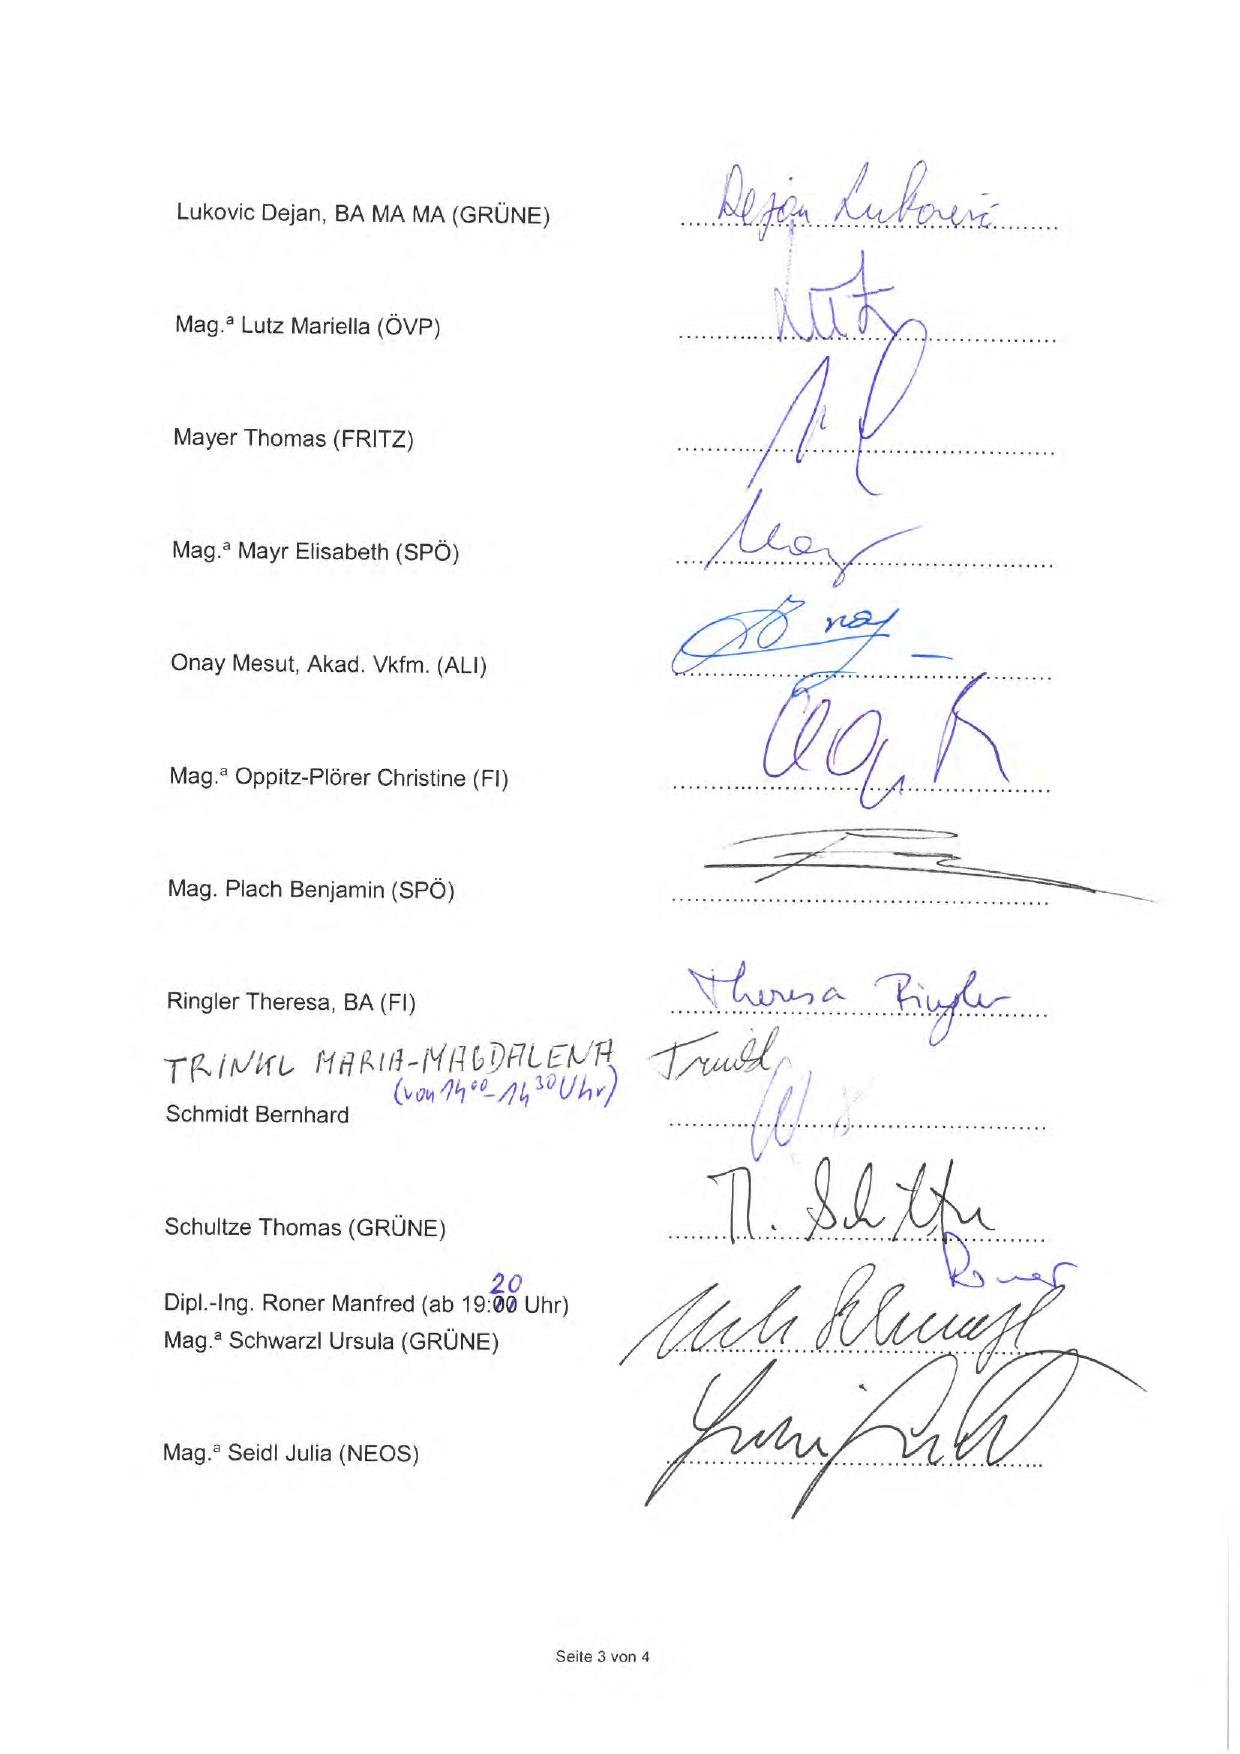 Lukovic Dejan, BA MA MA (GRÜNE) Dejan Luković
Mag.ª Lutz Mariella (ÖVP) Lutz
Mayer Thomas (FRITZ)
Mag.ª Mayr Elisabeth (SPÖ) Mayr
Onay Mesut, Akad. Vkfm. (ALI) Onay
Mag.ª Oppitz-Plörer Christine (FI)
Mag. Plach Benjamin (SPÖ)
Ringler Theresa, BA (FI) Theresa Ringler
TRINKL MARIA-MAGDALENA
(von 14⁰⁰-14³⁰ Uhr)
Schmidt Bernhard
Schultze Thomas (GRÜNE) T. Schultze
20 Roner
Dipl.-Ing. Roner Manfred (ab 19:00 Uhr)
Mag.ª Schwarzl Ursula (GRÜNE) Schwarzl
Mag.ª Seidl Julia (NEOS)
Seite 3 von 4